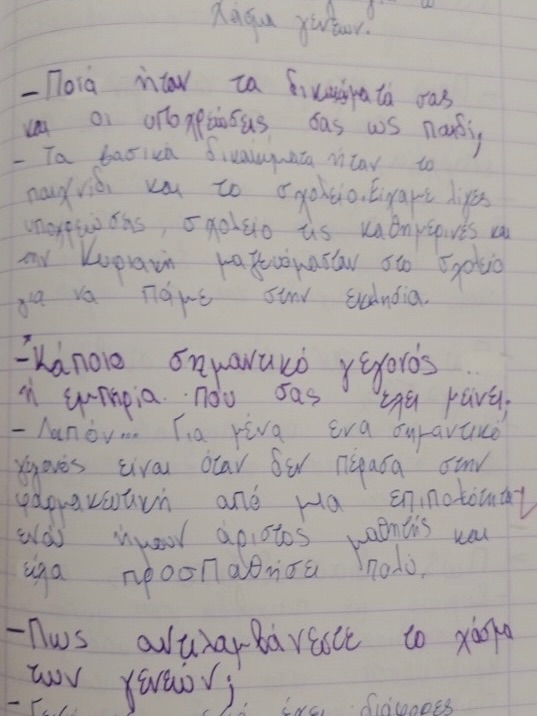 Χάσμα γενεών.
- Ποιά ήταν τα δικαιώματά σας
και οι υποχρεώσεις σας ως παιδί;
- Τα βασικά δικαιώματα ήταν το
παιχνίδι και το σχολείο. Είχαμε λίγες
υποχρεώσας, σχολείο τις καθημερινές και
την Κυριακή μαζευόμασταν στο σχολείο
για να πάμε στην εκκλησία.
- Κάποιο σημαντικό γεγονός
ή εμπερία που σας έχει μείνει;
- Λοιπόν... Για μένα ενα σημαντικό
γεγονός είναι όταν δεν πέρασα στην
φαρμακευτική από μια επιπολότητα
ενώ ήμουν άριστος μαθητής και
είχα προσπαθήσει πολύ.
- Πως αντιλαμβάνεστε το χάσμα
των γενεών;
έχει διάφορες